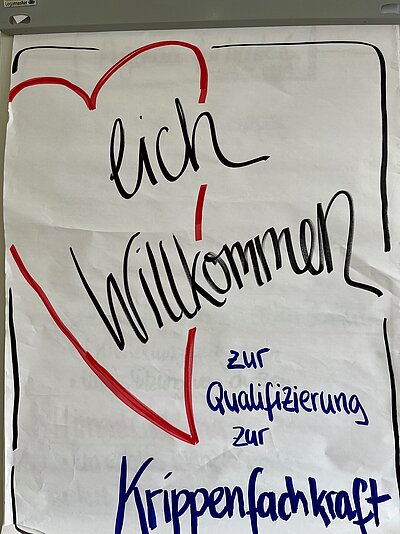 Legamaster
lich
Willkommen
zur
Qualifizierung
zur
Krippenfachkraft